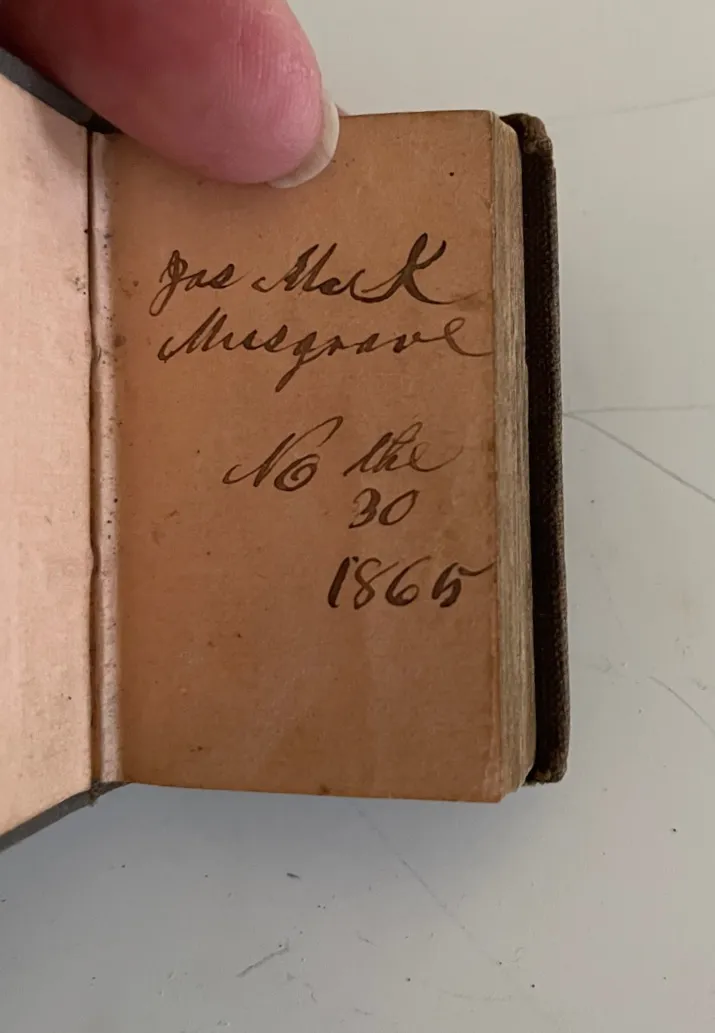 Jas McK
Musgrave
No the
30
1865